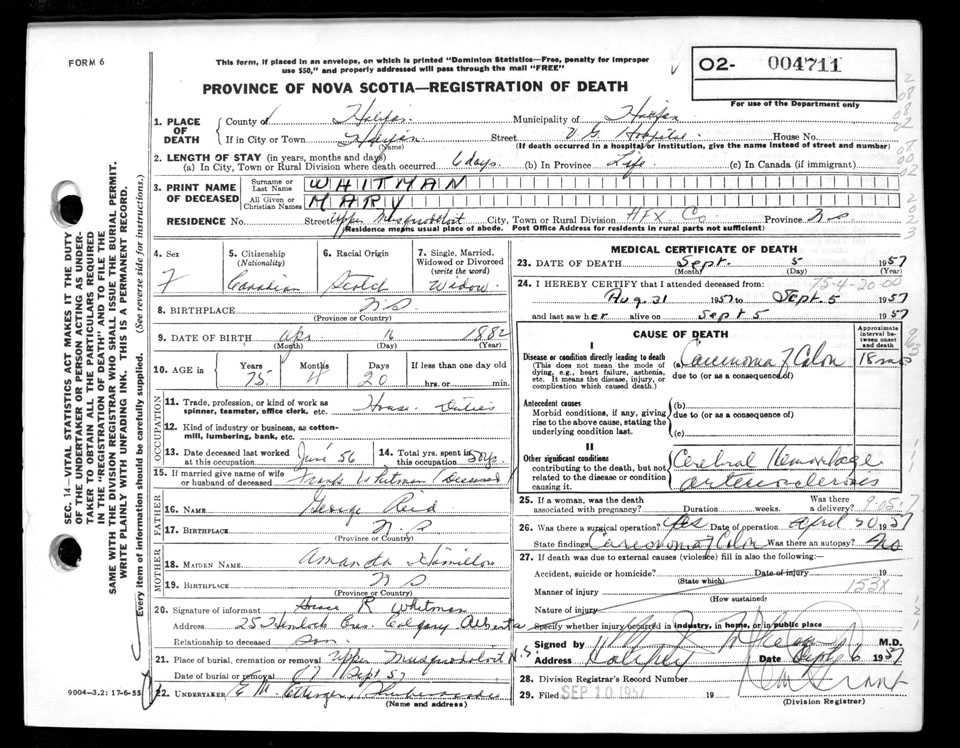 FORM 6
This form, if placed in an envelope, on which is printed "Dominion Statistics—Free, penalty for improper
use $50," and properly addressed will pass through the mail "FREE"
O2- 004711
For use of the Department only
PROVINCE OF NOVA SCOTIA—REGISTRATION OF DEATH
1. PLACE OF DEATH
County of Halifax Municipality of Halifax
If in City or Town Halifax Street V. G. Hospital House No.
(Name) (If death occurred in a hospital or institution, give the name instead of street and number)
2. LENGTH OF STAY (in years, months and days)
(a) In City, Town or Rural Division where death occurred 6 days. (b) In Province Life (c) In Canada (if immigrant)
3. PRINT NAME OF DECEASED
Surname or Last Name WHITMAN
All Given or Christian Names MARY
RESIDENCE No. Street Upper Musquodoboit City, Town or Rural Division HFX Co Province N S
(Residence means usual place of abode. Post Office Address for residents in rural parts not sufficient)
4. Sex F
5. Citizenship (Nationality) Canadian
6. Racial Origin Scotch
7. Single, Married, Widowed or Divorced (write the word) Widow
8. BIRTHPLACE N S
(Province or Country)
9. DATE OF BIRTH Apr 16 1882
(Month) (Day) (Year)
10. AGE in Years 75 Months 4 Days 20 If less than one day old hrs. or min.
OCCUPATION
11. Trade, profession, or kind of work as spinner, teamster, office clerk, etc. House Duties
12. Kind of industry or business, as cotton-mill, lumbering, bank, etc.
13. Date deceased last worked at this occupation 56
14. Total yrs. spent in this occupation 50 yrs.
15. If married give name of wife or husband of deceased Frank Whitman (Deceased)
FATHER
16. NAME George Reid
17. BIRTHPLACE N. S
(Province or Country)
MOTHER
18. MAIDEN NAME Amanda Hamilton
19. BIRTHPLACE N S
(Province or Country)
20. Signature of informant R Whitman
Address Cres. Calgary Alberta
Relationship to deceased Son
21. Place of burial, cremation or removal Upper Musquodoboit N.S.
Date of burial or removal 7 Sept 57
22. UNDERTAKER E M Ettinger, Shubenacadie
(Name and address)
9004—3.2: 17-6-55
MEDICAL CERTIFICATE OF DEATH
23. DATE OF DEATH Sept. 5 1957
(Month) (Day) (Year)
24. I HEREBY CERTIFY that I attended deceased from: 75-4-20-00
Aug. 31 1957 to Sept. 5 1957
and last saw her alive on Sept 5 1957
CAUSE OF DEATH
Approximate interval between onset and death
I
Disease or condition directly leading to death (a) Carcinoma of Colon 18 mos
(This does not mean the mode of dying, e.g., heart failure, asthenia, etc. It means the disease, injury, or complication which caused death.)
due to (or as a consequence of)
Antecedent causes
Morbid conditions, if any, giving rise to the above cause, stating the underlying condition last.
(b)
due to (or as a consequence of)
(c)
II
Other significant conditions contributing to the death, but not related to the disease or condition causing it.
Cerebral Hemorrhage
Arteriosclerosis
25. If a woman, was the death associated with pregnancy? Duration weeks. Was there a delivery?
26. Was there a surgical operation? Yes Date of operation April 30 1957
State findings Carcinoma of Colon Was there an autopsy? No
27. If death was due to external causes (violence) fill in also the following:—
Accident, suicide or homicide? Date of injury 19
(State which)
Manner of injury 153X
(How sustained)
Nature of injury
Specify whether injury occurred in industry, in home, or in public place
Signed by M.D.
Address Halifax Date Sept 6 1957
28. Division Registrar's Record Number
29. Filed SEP 10 1957 19 Grant
(Division Registrar)
SEC. 14—VITAL STATISTICS ACT MAKES IT THE DUTY
OF THE UNDERTAKER OR PERSON ACTING AS UNDER-
TAKER TO OBTAIN ALL THE PARTICULARS REQUIRED
IN THE "REGISTRATION OF DEATH" AND TO FILE THE
SAME WITH THE DIVISION REGISTRAR WHO SHALL ISSUE THE BURIAL PERMIT.
WRITE PLAINLY WITH UNFADING INK. THIS IS A PERMANENT RECORD.
Every item of information should be carefully supplied. (See reverse side for instructions.)